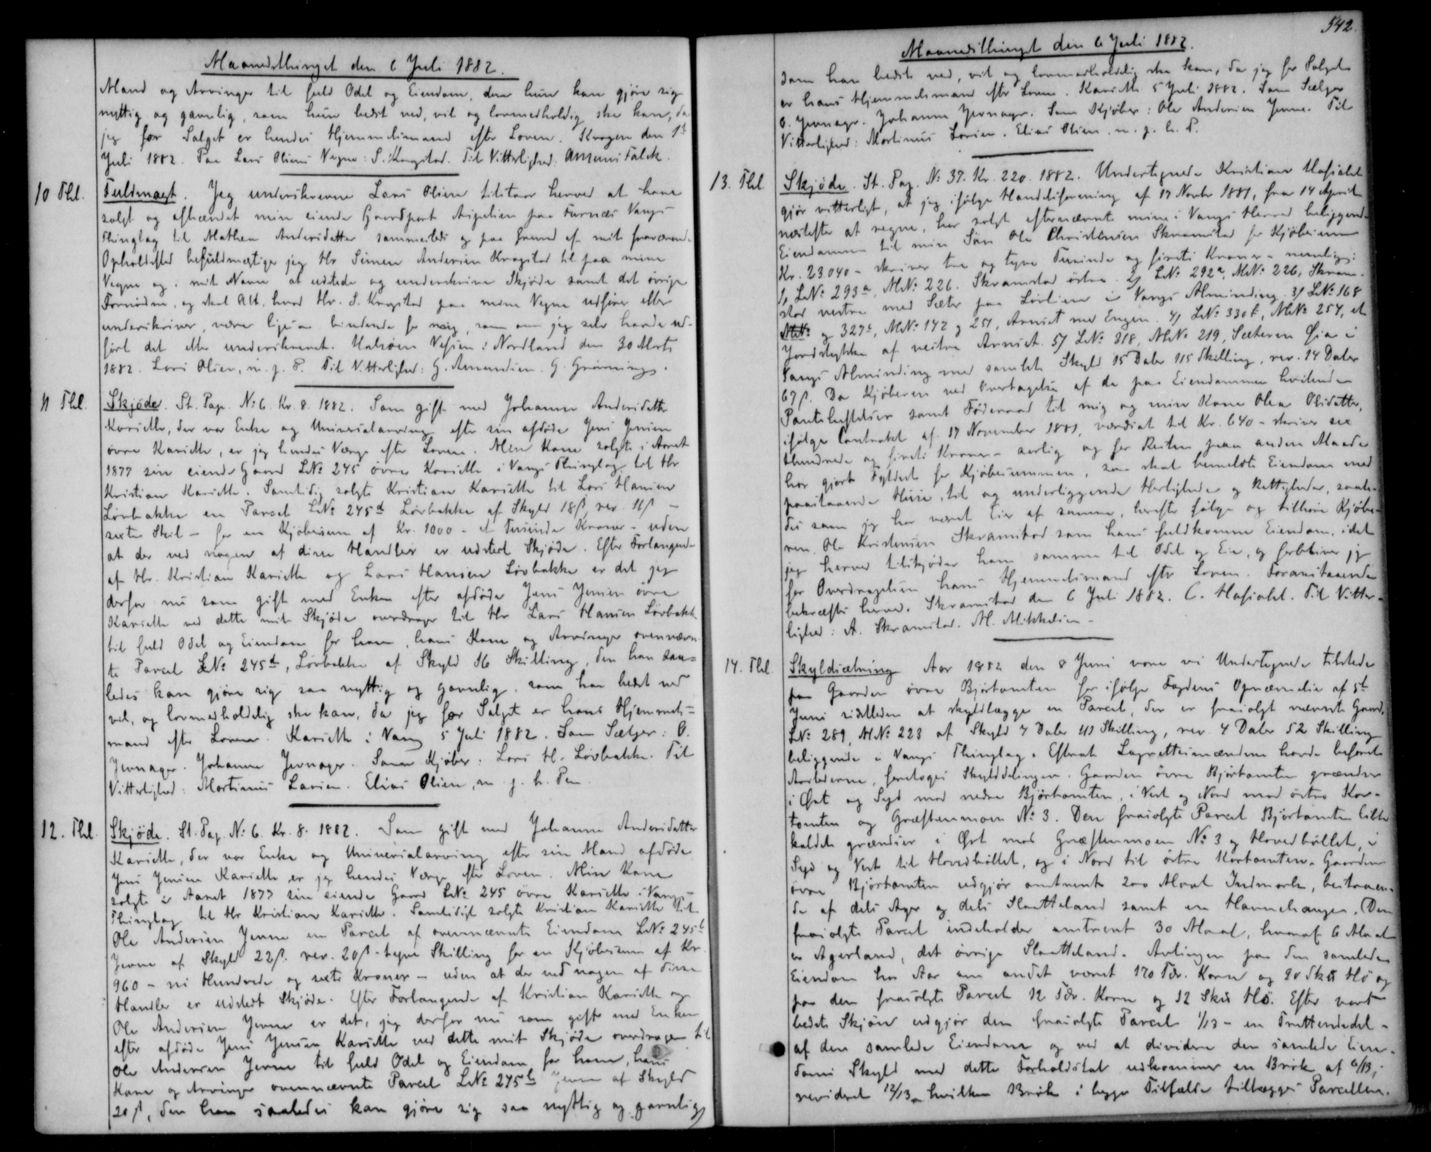 Maanedsthinget den 6 Juli 1882.
Mand og Arvinger til fuld Odel og Eiendom, den hun kan gjøre sig
nyttig og gavnlig, som hun bedst ved, vil og lovmedholdelig ske kan, da
jeg før Salget er hendes Hjemmelsmand efter Loven. Skragen den 1ste
Juli 1882. Paa Lars Olsens Vegne: S. Kragstad. Til Vitterlighed. Amund Falck.
10 Thl. Fuldmagt. Jeg underskrevne Lars Olsen tilstaar herved at have
solgt og afhændet min eiende Gaardpart paa Furnæs Vangs
Thinglag til Mathea Andersdatter sammesteds og paa Grund af mit fraværende
Opholdssted befuldmægtiger jeg Hr Simen Andersen Kragstad til paa mine
Vegne og i mit Navn at udstede og underskrive Skjøde samt det øvrige
Fornødne, og skal Alt, hvad Hr. S. Kragstad paa mine Vegne udfører eller
underskriver, være ligesaa bindende for mig, som om jeg selv havde ud-
ført det eller underskrevet. Halsøen Vefsen i Nordland den 30 Marts
1882. Lars Olsen, m. p. P. Til Vitterlighed: G. Amundsen. G. Grønnings.
11 Thl. Skjøde. St. Pap. No 6. Kr. 8. 1882. Som gift med Johanne Andersdatter
Karseth, der var Enke og Universalarving efter sin afdøde Jens Jensen
øvre Karseth, er jeg hendes Værge efter Loven. Min Kone solgte i Aaret
1877 sin eiende Gaard LNo 245 øvre Karseth i Vangs Thinglag til Hr
Kristian Karseth. Samtidig solgte Kristian Karseth til Lars Hansen
Løvbakke en Parcel LNo 245d Løvbakke af Skyld 18ß, rev. 16ß –
sexten Skil – for en Kjøbesum af Kr. 1000 – et Tusinde Kroner – uden
at der ved nogen af disse Handler er udstedt Skjøde. Efter Forlangende
af Hr. Kristian Karseth og Lars Hansen Løvbakke er det jeg
derfor nu som gift med Enken efter afdøde Jens Jensen øvre
Karseth ved dette mit Skjøde overdrager til Hr Lars Hansen Løvbakke
til fuld Odel og Eiendom for ham, hans Kone og Arvinger ovennævn-
te Parcel LNo 245d, Løvbakke af Skyld 16 Skilling, den han saa-
ledes kan gjøre sig saa nyttig og gavnlig, som han bedst ved
vil, og lovmedholdelig ske kan, da jeg før Salget er hans Hjemmels-
mand efter Loven. Karseth i Vang 5 Juli 1882. Som Sælger: O.
Jevnager. Johanne Jevnager. Som Kjøber: Lars H. Løvbakke. Til
Vitterlighed: Martinus Larsen. Elias Olsen, m. p. h. Pen.
12. Thl. Skjøde. St. Pap. No 6. Kr. 8. 1882. Som gift med Johanne Andersdatter
Karseth, der var Enke og Universalarving efter sin Mand afdøde
Jens Jensen Karseth er jeg hendes Værge efter Loven. Min Kone
solgte i Aaret 1877 sin eiende Gaard LNo 245 øvre Karseth i Vangs
Thinglag til Hr Kristian Karseth. Samtidigt solgte Kristian Karseth til
Ole Andersen Jevne en Parcel af ovennævnte Eiendom LNo 245b
Jevne af Skyld 22ß. rev. 20ß. – tyve Skilling for en Kjøbesum af Kr.
960 – ni Hundrede og sexti Kroner – uden at der ved nogen af disse
Handler er udstedt Skjøde. Efter Forlangende af Kristian Karseth og
Ole Andersen Jevne er det, jeg derfor nu som gift med Enken
efter afdøde Jens Jensen Karseth ved dette mit Skjøde overdrager til
Ole Andersen Jevne til fuld Odel og Eiendom for ham, hans
Kone og Arvinger ovennævnte Parcel LNo 245b Jevne af Skyld
20ß, den han saaledes kan gjøre sig saa nyttig og gavnlig,
542.
Maanedsthinget den 6 Juli 1882.
som han bedst ved, vil og lovmedholdelig ske kan, da jeg før Salget
er hans Hjemmelsmand efter Loven. Karseth 5 Juli 1882. Som Sælger
O. Jevnager. Johanne Jevnager. Som Kjøber: Ole Andersen Jevne. Til
Vitterlighed: Martinus Larsen. Elias Olsen. m. p. h. P.
13. Thl. Skjøde. St. Pap. No 37. Kr. 220. 1882. Undertegnede Kristian
gjør vitterligt, at jeg ifølge Handelsforening af 17 Novbr 1881, fra 14 April
næstefter at regne, har solgt efternævnte mine i Vangs Herred beliggende
Eiendomme til min Søn Ole Christensen Skramstad for Kjøbesum
Kr. 23040 – skriver tre og tyve Tusinde og firti Kroner – nemlig:
1, LNo 293a, MNo 226. Skramstad østre. 2/ LNo 292a, MNo 226, Skram-
stad vestre med Sæter paa i Vangs Alminding. 3/ LNo 168
og 327a, MNo 142 og 251, Arnset med Engen. 4/ LNo 330b, MNo 254, et
Jordstykke af vestre Arnset. 5/ LNo 218, MNo 219, Sæteren i
Vangs Alminding med samlet Skyld 15 Daler 115 Skilling, rev. 14 Daler
67ß. Da Kjøberen ved Overtagelse af de paa Eiendommen hvilende
Panteheftelser samt Føderaad til mig og min Kone Olea Olsdatter,
ifølge Contrakt af 17 November 1881, værdsat til Kr. 640 – skriver sex
Hundrede og firti Kroner – aarlig og for Resten paa anden Maade
har gjort Fyldest for Kjøbesummen, saa skal bemeldte Eiendom med
paastaaende Huse, til og underliggende Herligheder og Rettigheder, saale-
des som jeg har været Eier af samme, herefter følge og tilhøre Kjøbe-
ren Ole Kristensen Skramstad som hans fuldkomne Eiendom, idet
jeg herved tilskjøder ham samme til Odel og Eie, og forbliver jeg
for Overdragelsen hans Hjemmelsmand efter Loven. Foranstaaende
bekræftes herved. Skramstad den 6 Juli 1882. C. Til Vitter-
lighed: A. Skramstad. M. Mikkelsen –
14. Thl. Skylddeling Aar 1882 den 8 Juni vare vi Undertegnede tilstede
paa Gaarden øvre Bjørtomten for ifølge Fogdens Opnævnelse af 5te
Juni sidstleden at skyldlægge en Parcel, der er fraisolgt nævnte Gaard,
LNo 289, MNo 223 af Skyld 4 Daler 113 Skilling, rev 4 Daler 52 Skilling
beliggende i Vangs Thinglag. Efterat Lagrettesmændene havde befaret
Aastederne, foretoges Skylddelingen. Gaarden øvre Bjørtomten grændser
i Øst og Syd mod nedre Bjørtomten, i Vest og Nord mod østre Kor-
tomten og Græstenmoen No 3. Den fraisolgte Parcel Bjørtomten lille
kaldet grændser i Øst mod Græstenmoen No 3 og Hovedbøllet, i
Syd og Vest til Hovedbøllet, og i Nord til østre Kortomten. Gaarden
øvre Bjørtomten udgjør omtrent 200 Maal Indmark, bestaaen-
de af dels Ager og dels Slaatteland samt en Havnehage. Den
fraisolgte Parcel indeholder omtrent 30 Maal, hvoraf 6 Maal
er Agerland, det øvrige Slaatteland. Avlingen paa den samlede
Eiendom har Aar om andet været 170 Tdr. Korn og 90 Skis Hø og
paa den fraisolgte Parcel 12 Tdr. Korn og 12 Skis Hø. Efter vort
bedste Skjøn udgjør den fraisolgte Parcel 1/13 – en Trettendedel –
af den samlede Eiendom og ved at dividere den samlede Eien-
doms Skyld med dette Forholdstal udkommer en Brøk af 6/13,
revideret 12/13, hvilken Brøk i begge Tilfælde tillægges Parcellen.